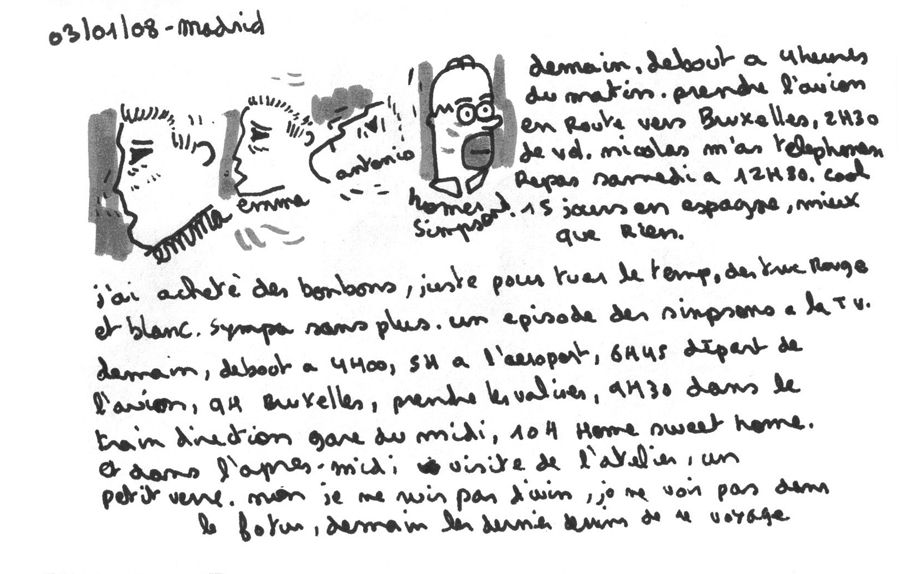 03/01/08 - Madrid
demain, debout a 4 heures
du matin. prendre l'avion
en Route vers Bruxelles, 2H30
de vol. nicolas m'as telephoner
Repas samedi a 12H30. cool
15 jours en espagne, mieux
que Rien.
emma
emma
antonio
homer
simpson.
j'ai acheté des bonbons, juste pour tuer le temp, des truc Rouge
et blanc. sympa sans plus. un episode des simpsons a la TV.
demain, debout a 4H00, 5H a l'aeroport, 6H45 départ de
l'avion, 9H Bruxelles, prendre les valises, 9H30 dans le
train direction gare du midi, 10H Home sweet home.
et dans l'apres-midi visite de l'atelier, un
petit verre. non je ne suis pas d'vin, je ne vois pas dans
le fotur, demain les dernier dessins de ce voyage